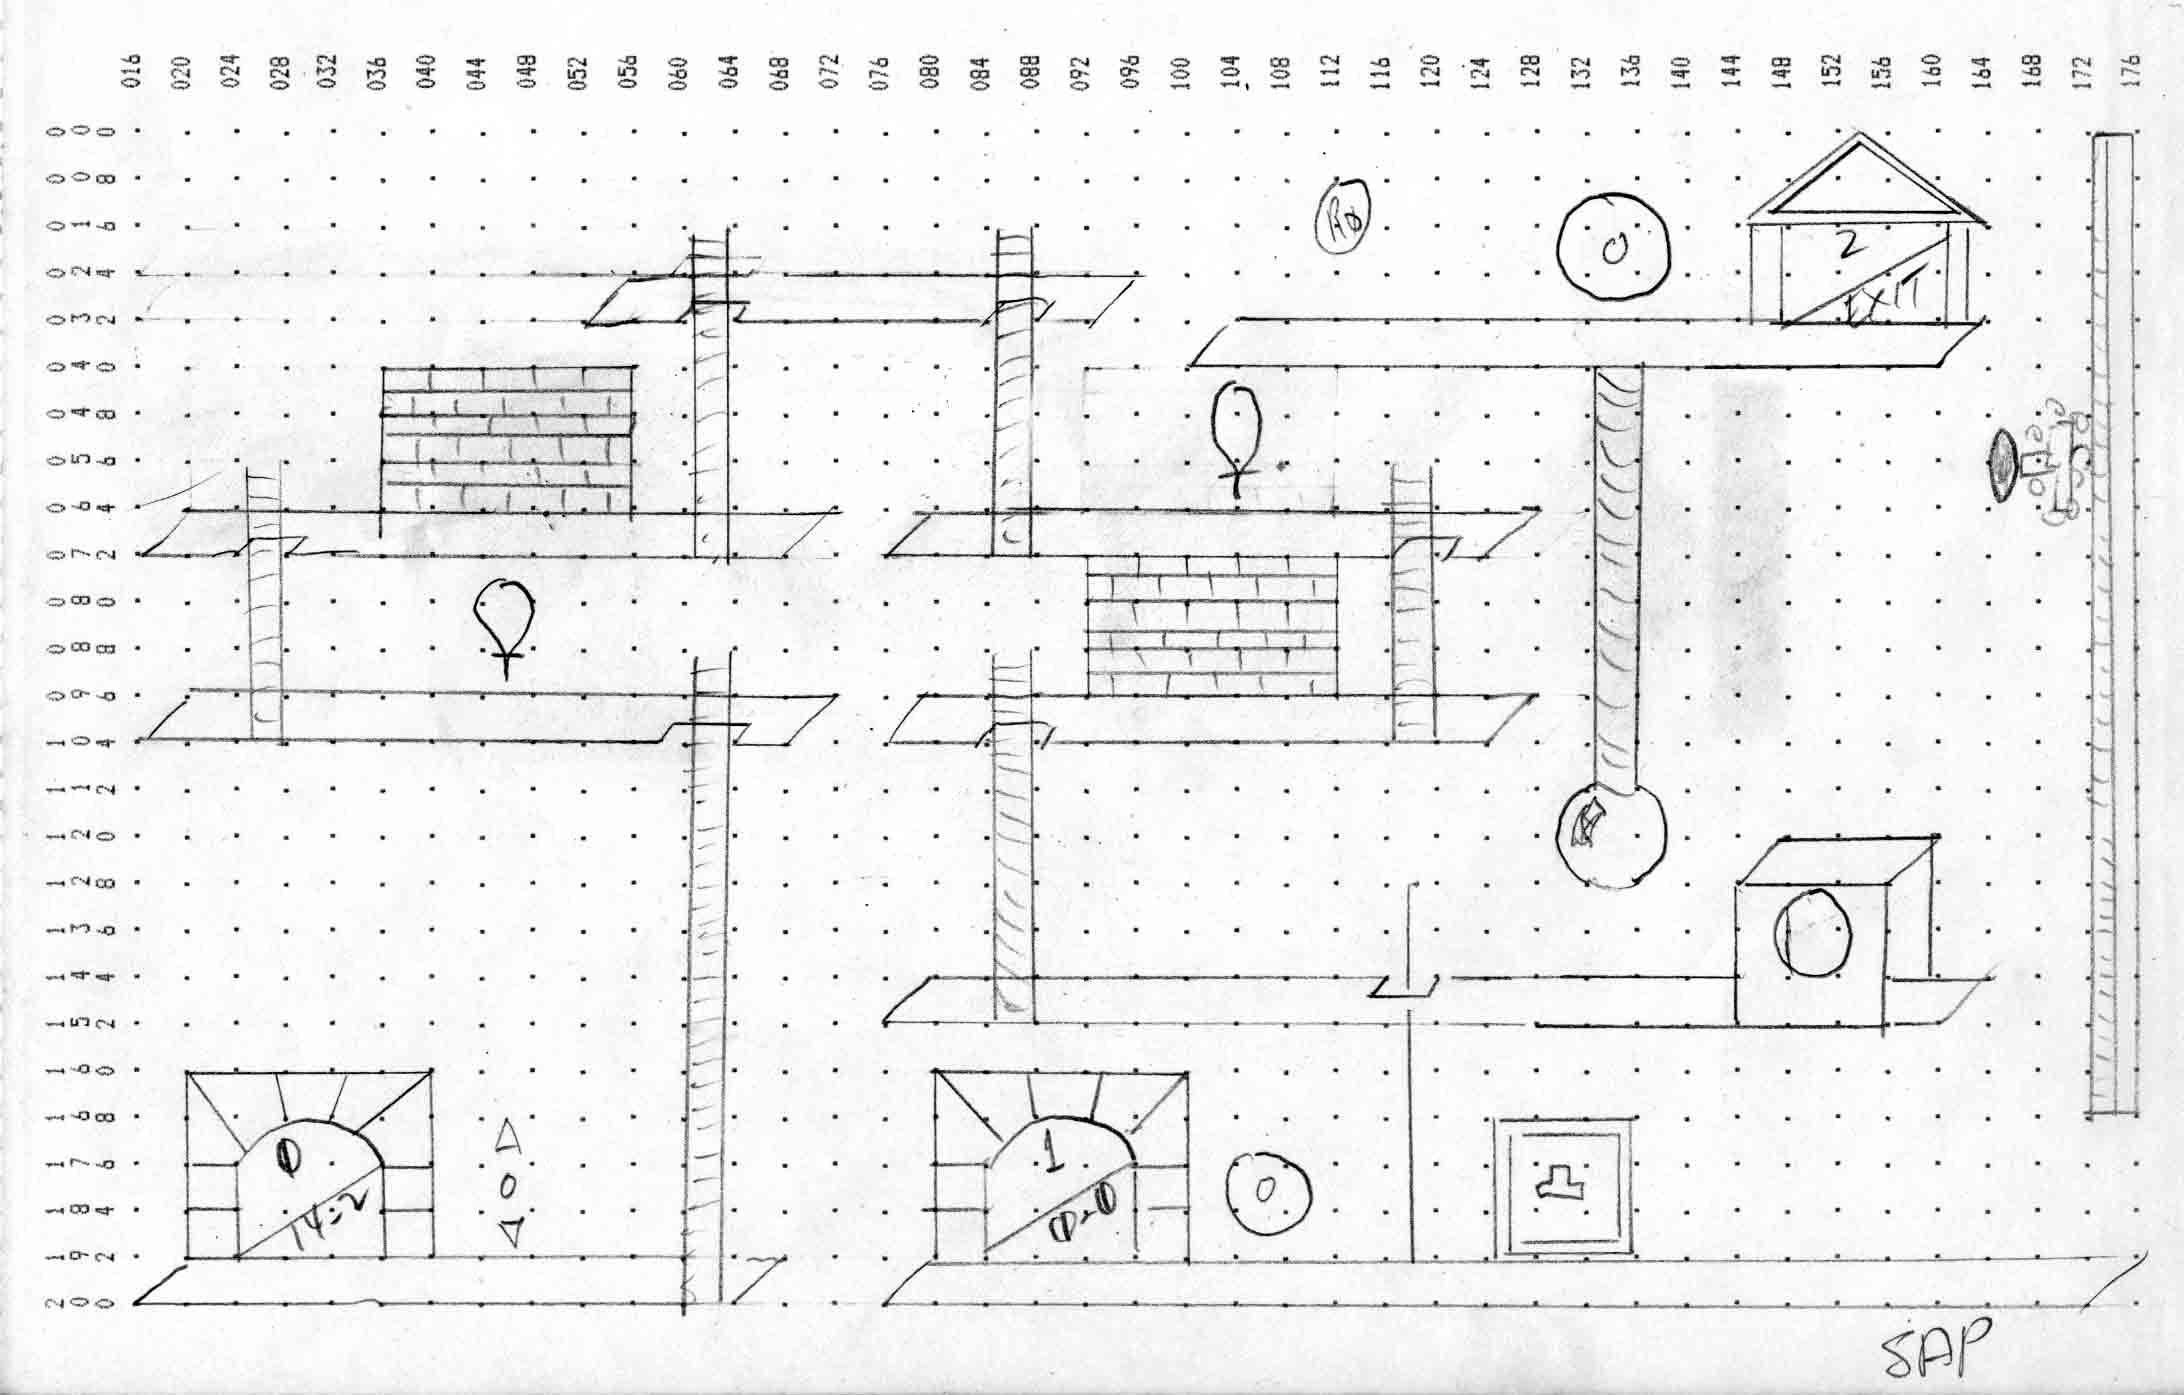 016 020 024 028 032 036 040 044 048 052 056 060 064 068 072 076 080 084 088 092 096 100 104 108 112 116 120 124 128 132 136 140 144 148 152 156 160 164 168 172 176
000
008
016
024
032
040
048
056
064
072
080
088
096
104
112
120
128
136
144
152
160
168
176
184
192
200
2
EXIT
0
14-2
1
0-0
SAP